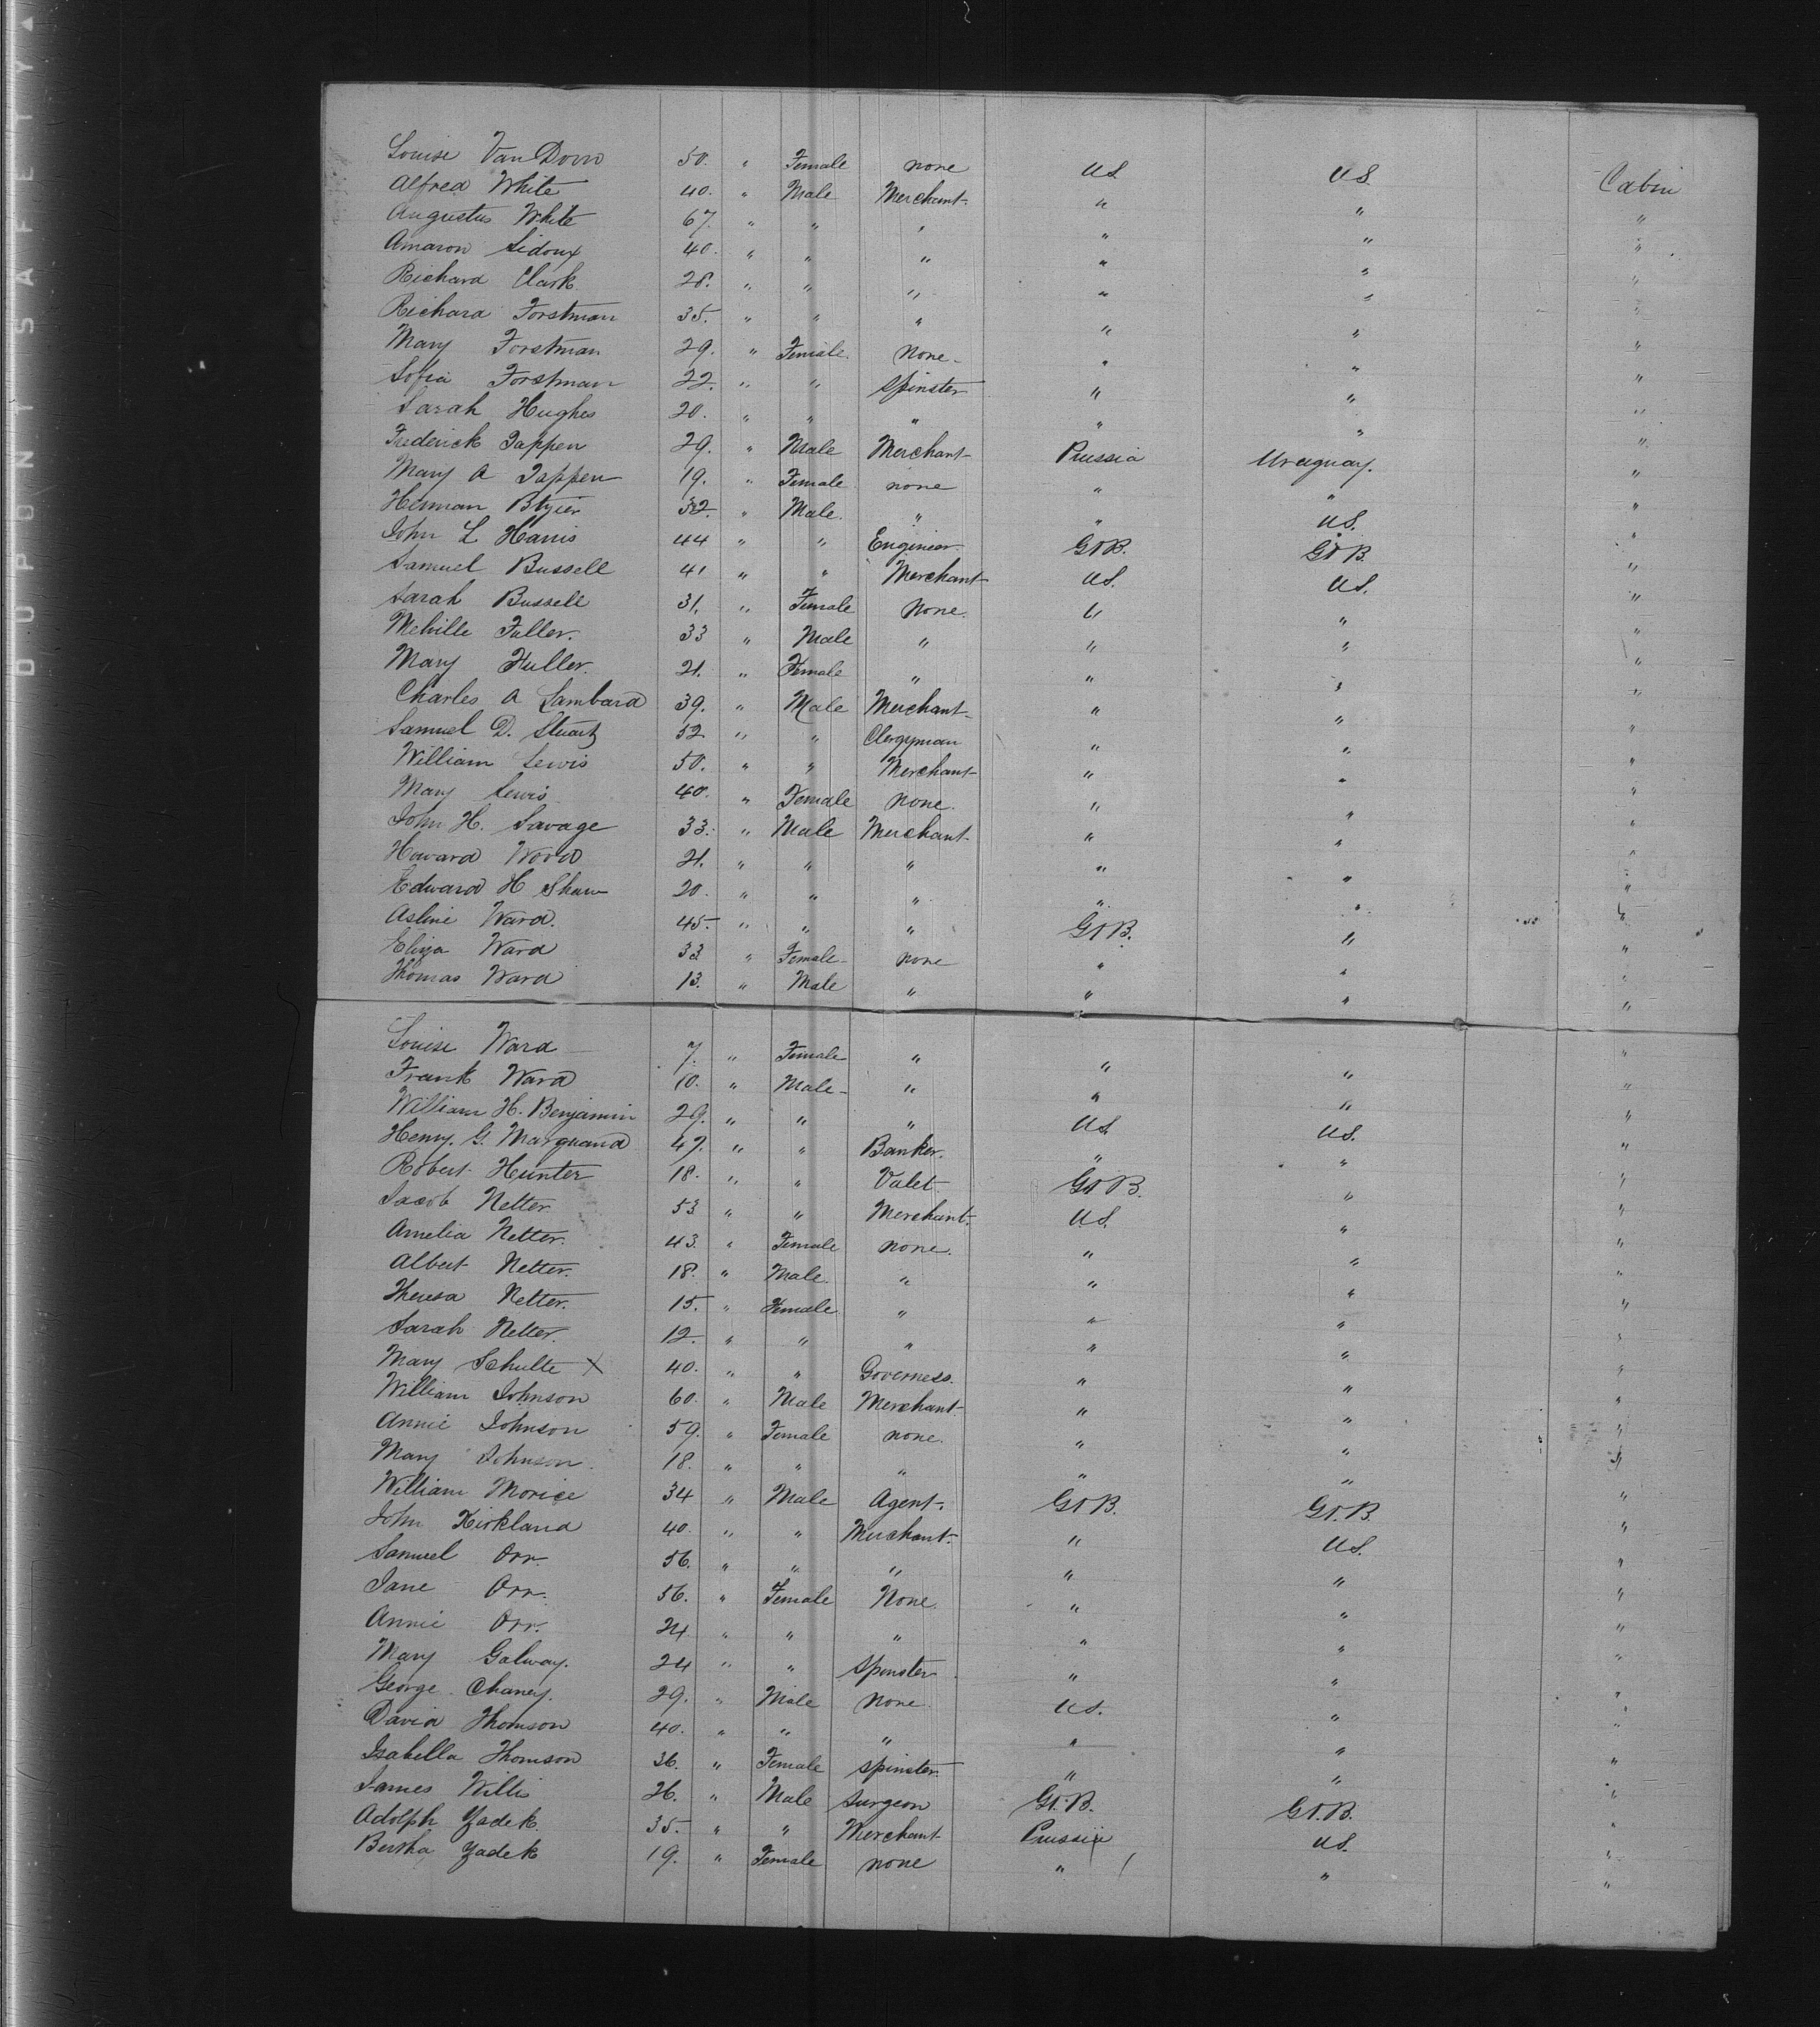 DUPONT SAFETY
Louise Van Dorn 50. " Female none US US Cabin
Alfred White 40. " Male Merchant " " "
Augustus White 67. " " " " " "
Amaron Sidoux 40. " " " " " "
Richard Clark 28. " " " " " "
Richard Forstman 35. " " " " " "
Mary Forstman 29. " Female none " " "
Sofia Forstman 22. " " Spinster " " "
Sarah Hughes 20. " " " " " "
Frederick Tappen 29. " Male Merchant Prussia Uruguay. "
Mary A Tappen 19. " Female none " " "
Herman 32. " Male. " " US. "
John L Harris 44 " " Engineer Gt B. Gt B. "
Samuel Bussell 41 " " Merchant US. US. "
Sarah Bussell 31. " Female none " " "
Melville Fuller. 33 " Male " " " "
Mary Fuller. 21. " Female " " " "
Charles A Lambard 39. " Male Merchant " " "
Samuel D. Stuart 52 " " Clergyman " " "
William Lewis 50. " " Merchant " " "
Mary Lewis 40. " Female none. " " "
John H. Savage 33. " Male Merchant " " "
Howard Wood 21. " " " " " "
Edward H Shaw 20. " " " " " "
Asline Ward. 45. " " " Gt B. " "
Eliza Ward 33 " Female none " " "
Thomas Ward 13. " Male " " " "
Louise Ward 7. " Female " " " "
Frank Ward 10. " Male " " " "
William H. Benjamin 29. " " " US. US. "
Henry. G. Marquand 47. " " Banker. " " "
Robert Hunter 18. " " Valet Gt B. " "
Jacob Netter 53 " " Merchant. US. " "
Amelia Netter. 43. " Female none. " " "
Albert Netter. 18. " Male. " " " "
Theresa Netter. 15. " Female " " " "
Sarah Netter. 12. " " " " " "
Mary Schulte X 40. " " Governess. " " "
William Johnson 60. " Male Merchant " " "
Annie Johnson 59. " Female none. " " "
Mary Johnson 18. " " " " " "
William Morice 34 " Male Agent. Gt B. Gt. B. "
John Kirkland 40. " " Merchant. " US. "
Samuel Orr. 56. " " " " " "
Jane Orr. 56. " Female None. " " "
Annie Orr. 24 " " " " " "
Mary Galway. 24 " " Spinster " " "
George Chaney. 29. " Male none. US. " "
David Thomson 40. " " " " " "
Isabella Thomson 36. " Female Spinster. " " "
James Willis 26. " Male Surgeon Gt. B. Gt. B. "
Adolph Zadek 35. " " Merchant Prussia US. "
Bertha Zadek 19. " Female none " " "